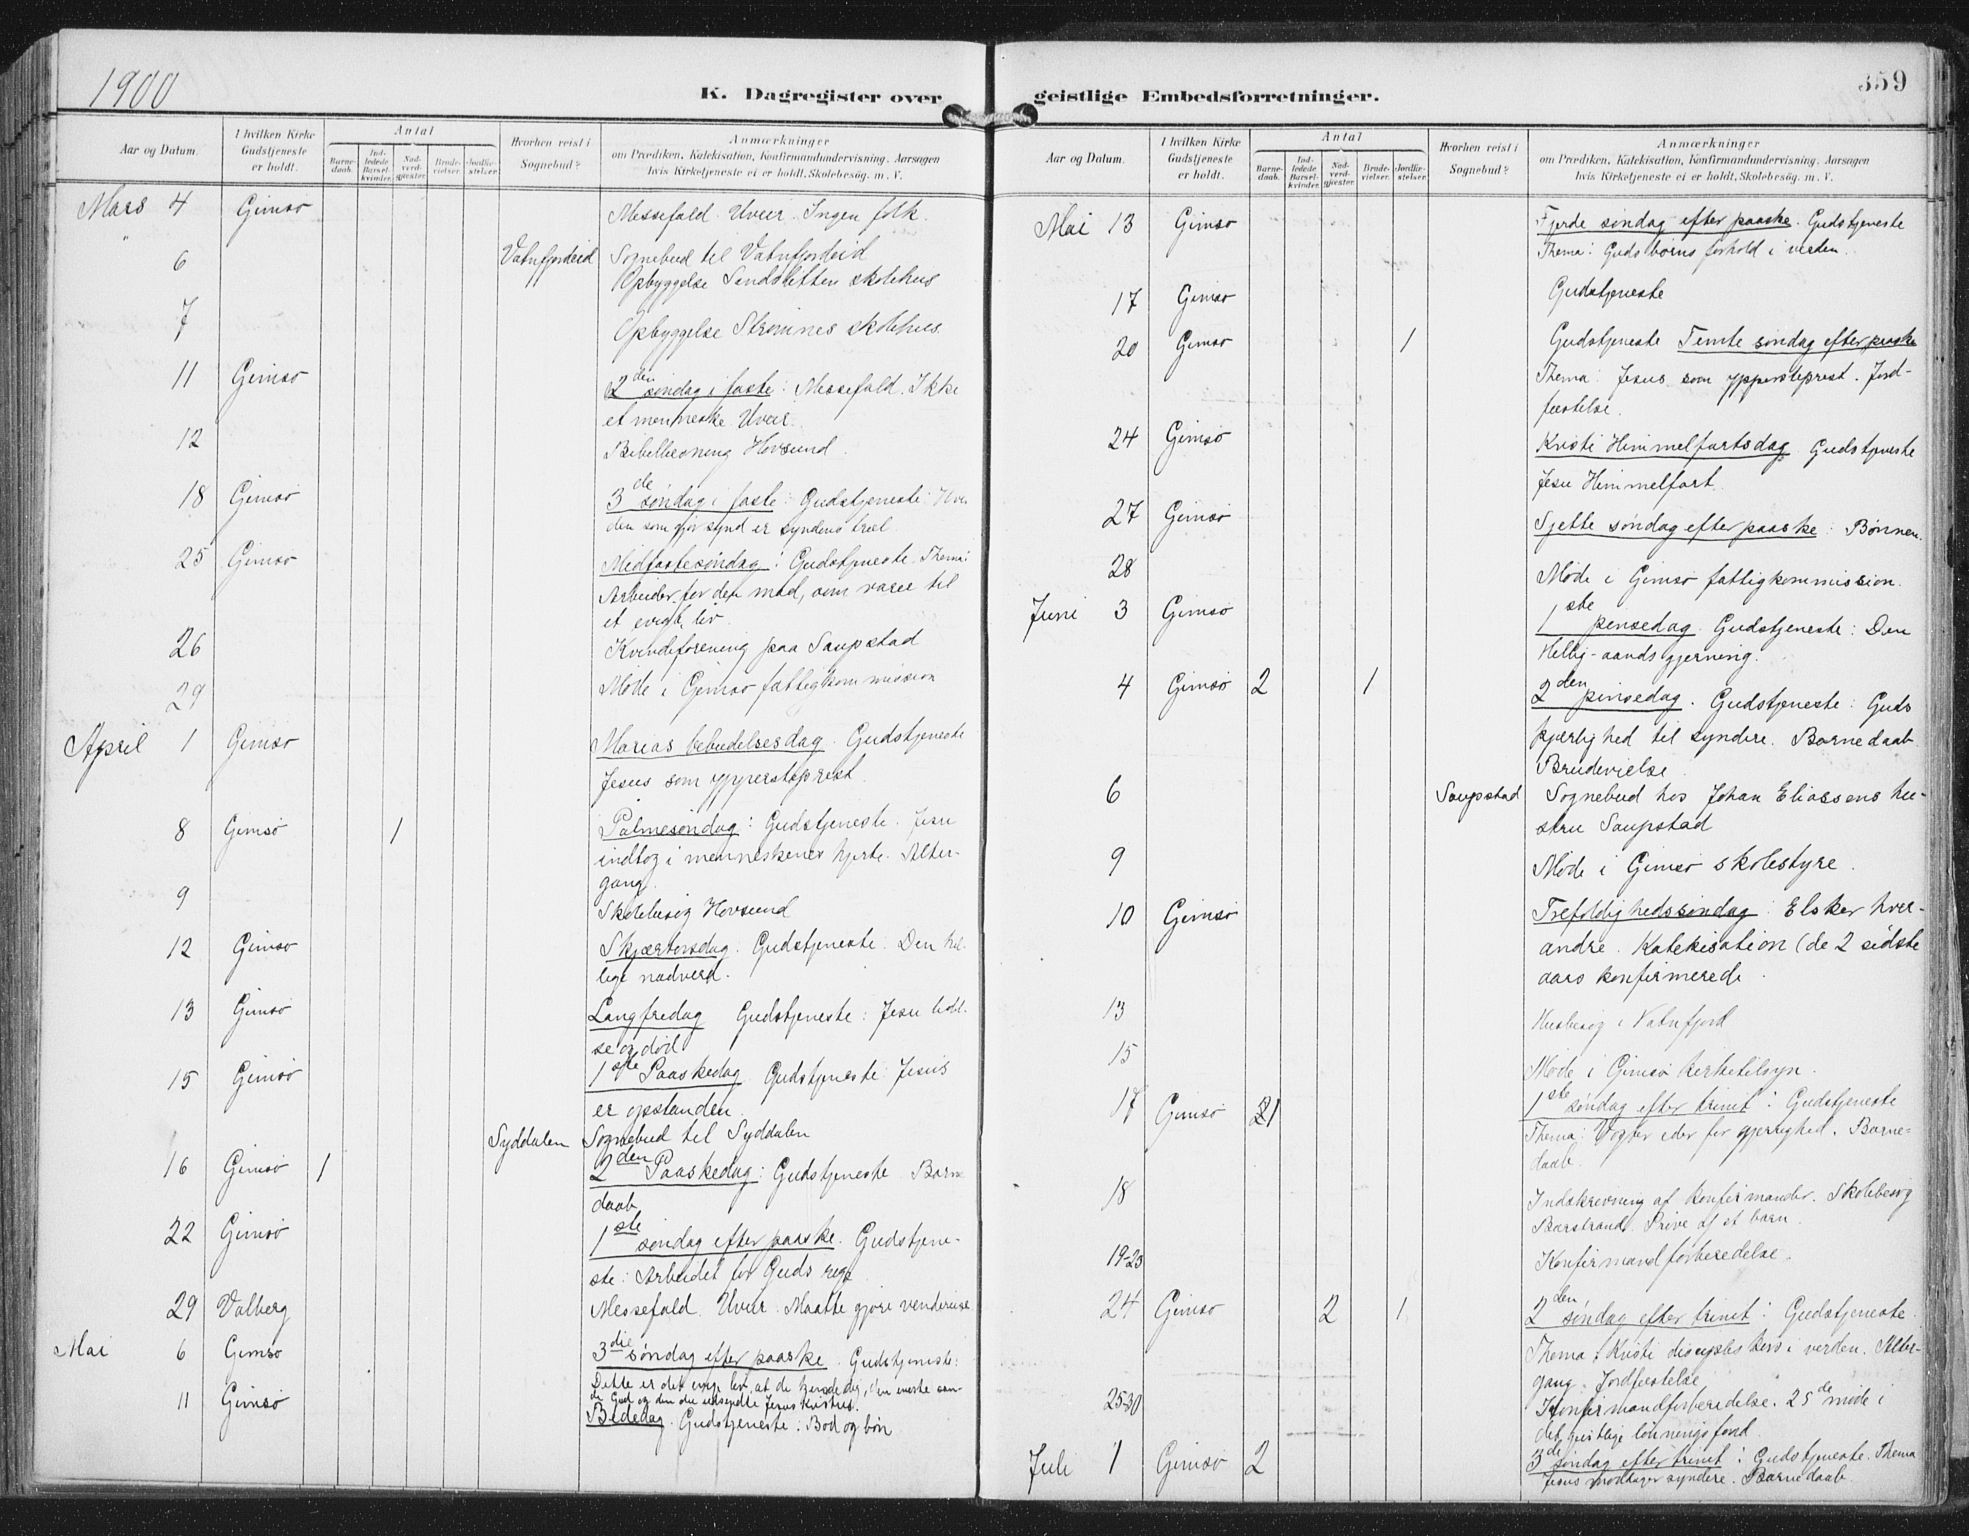 1900
K. Dagregister over
Aar og Datum.
I hvilken Kirke Gudstjeneste er holdt.
Antal
Barnedaab.
Indledede Barselkvinder.
Nadverdgjester.
Brudevielser.
Jordfæstelser.
Hvorhen reist i Sognebud?
Anmærkninger
om Prædiken, Katekisation, Konfirmandundervisning, Aarsagen
hvis Kirketjeneste ei er holdt, Skolebesøg. m. V.
Mars 4 Gimsø Messefald. Uveir. Ingen folk.
" 6 Vatnfjordeid Sognebud til Vatnfjordeid
Opbyggelse Sundsletten skolehus
7 Opbyggelse Strømnes skolehus
11 Gimsø 2den søndag i faste: Messefald. Ikke
et menneske. Uveir.
12 Bibellæsning Hovsund.
18 Gimsø 3de søndag i faste: Gudstjeneste: Hver
den som gjør synd er syndens træl.
25 Gimsø Midfastesøndag: Gudstjeneste. Thema:
Arbeider for den mad, som varer til
et evigt liv.
26 Kvindeforening paa Saupstad
29 Møde i Gimsø fattigkommission
April 1 Gimsø Marias bebudelsesdag. Gudstjeneste
Jesus som yppersteprest.
8 Gimsø 1 Palmesøndag: Gudstjeneste. Jesu
indtog i menneskenes hjerte. Alter-
gang.
9 Skolebesøg Hovsund
12 Gimsø Skjærtorsdag. Gudstjeneste: Den hel-
lige nadverd.
13 Gimsø Langfredag Gudstjeneste: Jesu lidel-
se og død
15 Gimsø 1ste Paaskedag Gudstjeneste: Jesus
er opstanden.
Syddalen Sognebud til Syddalen
16 Gimsø 1 2den Paaskedag: Gudstjeneste. Barne
daab
22 Gimsø 1ste søndag efter paaske. Gudstjene-
ste: Arbeidet for Guds rige
29 Valberg Messefald Uveir. Maatte gjøre vendereise
Mai 6 Gimsø 3die søndag efter paaske. Gudstjeneste:
Dette er det evige liv, at de kjende dig, den eneste san-
de Gud og den du udsendte Jesus Kristus.
11 Gimsø Bededag. Gudstjeneste: Bod og bøn
geistlige Embedsforretninger.
359
Aar og Datum.
I hvilken Kirke Gudstjeneste er holdt.
Antal
Barnedaab.
Indledede Barselkvinder.
Nadverdgjester.
Brudevielser.
Jordfæstelser.
Hvorhen reist i Sognebud?
Anmærkninger
om Prædiken, Katekisation, Konfirmandundervisning, Aarsagen
hvis Kirketjeneste ei er holdt, Skolebesøg. m. V.
Mai 13 Gimsø Fjerde søndag efter paaske. Gudstjeneste
Thema: Guds børns forhold i verden.
17 Gimsø Gudstjeneste
20 Gimsø 1 Gudstjeneste Femte søndag efter paaske
Thema: Jesus som ypperstoprest. Jord-
fæstelse.
24 Gimsø Kristi Himmelfartsdag Gudstjeneste
Jesu Himmelfart.
27 Gimsø Sjette søndag efter paaske: Bønnen.
28 Møde i Gimsø fattigkommission.
Juni 3 Gimsø 1ste pinsedag. Gudstjeneste: Den
Hellig-aands gjerning.
4 Gimsø 2 1 2den pinsedag. Gudstjeneste: Guds
kjærlighed til syndere. Barnedaab
Brudevielse
6 Saupstad Sognebud hos Johan Eliassens hu-
stru Saupstad
9 Møde i Gimsø skolestyre.
10 Gimsø Trefoldighedssøndag: Elsker hver-
andre. Katekisation (de 2 sidste
aars konfirmerede.
13 Husbesøg i Vatnfjord
15 Møde i Gimsø kirketilsyn.
17 Gimsø 1 1ste søndag efter trinit: Gudstjeneste
Thema: Vogter eder for gjerrighed. Barne-
daab.
18 Indskrivning af konfirmander. Skolebesøg
Barstrand. Prøve af et barn.
19-23 Konfirmandforberedelse.
24 Gimsø 2 1 2den søndag efter trinit: Gudstjeneste.
Thema: Kristi discipels kors i verden. Alter-
gang. Jordfæstelse
25-30 Konfirmandforberedelse. 25de møde i
det geistlige lønningsfond.
Juli 1 Gimsø 2 3de søndag efter trinit: Gudstjeneste. Thema
Jesus modtager syndere. Barnedaab.